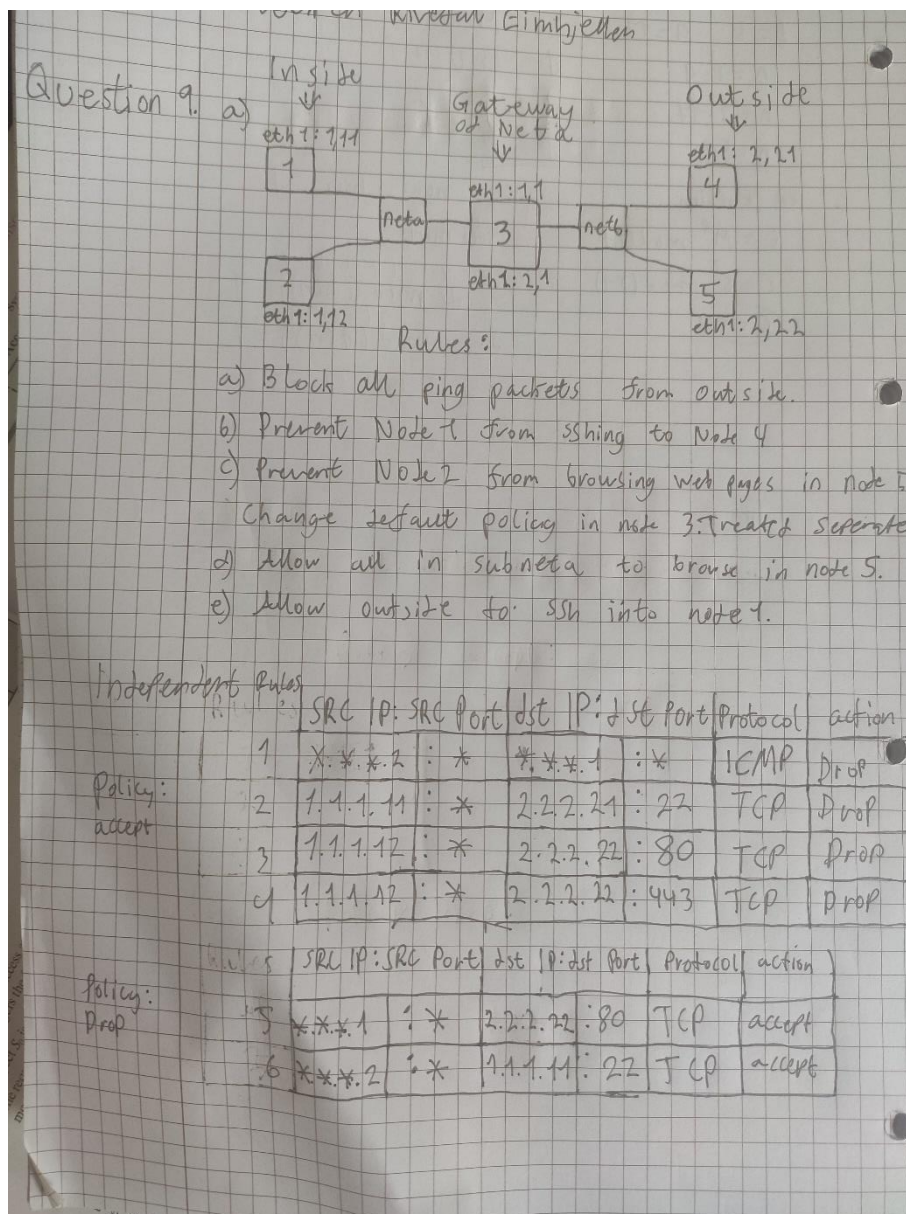 Eimhjellen
Inside
Question 9. a)
Gateway
of Neta
Outside
eth1: 1,11
eth1: 2,21
1
4
eth1: 1,1
neta
3
netb
2
eth1: 2,1
5
eth1: 1,12
eth1: 2,22
Rules:
a) Block all ping packets from outside.
b) Prevent Node 1 from sshing to Node 4
c) Prevent Node 2 from browsing web pages in node 5
Change default policy in node 3. Treated Seperate
d) Allow all in subneta to browse in node 5.
e) Allow outside to ssh into node 1.
Independent Rules
SRC IP: SRC Port dst IP: dst Port Protocol action
1 *.*.*.2 : * *.*.*.1 : * ICMP Drop
Policy:
accept
2 1.1.1.11 : * 2.2.2.21 : 22 TCP Drop
3 1.1.1.12 : * 2.2.2.22 : 80 TCP Drop
4 1.1.1.12 : * 2.2.2.22 : 443 TCP Drop
SRC IP: SRC Port dst IP: dst Port Protocol action
Policy:
Drop
5 *.*.*.1 : * 2.2.2.22 : 80 TCP accept
6 *.*.*.2 : * 1.1.1.11 : 22 TCP accept